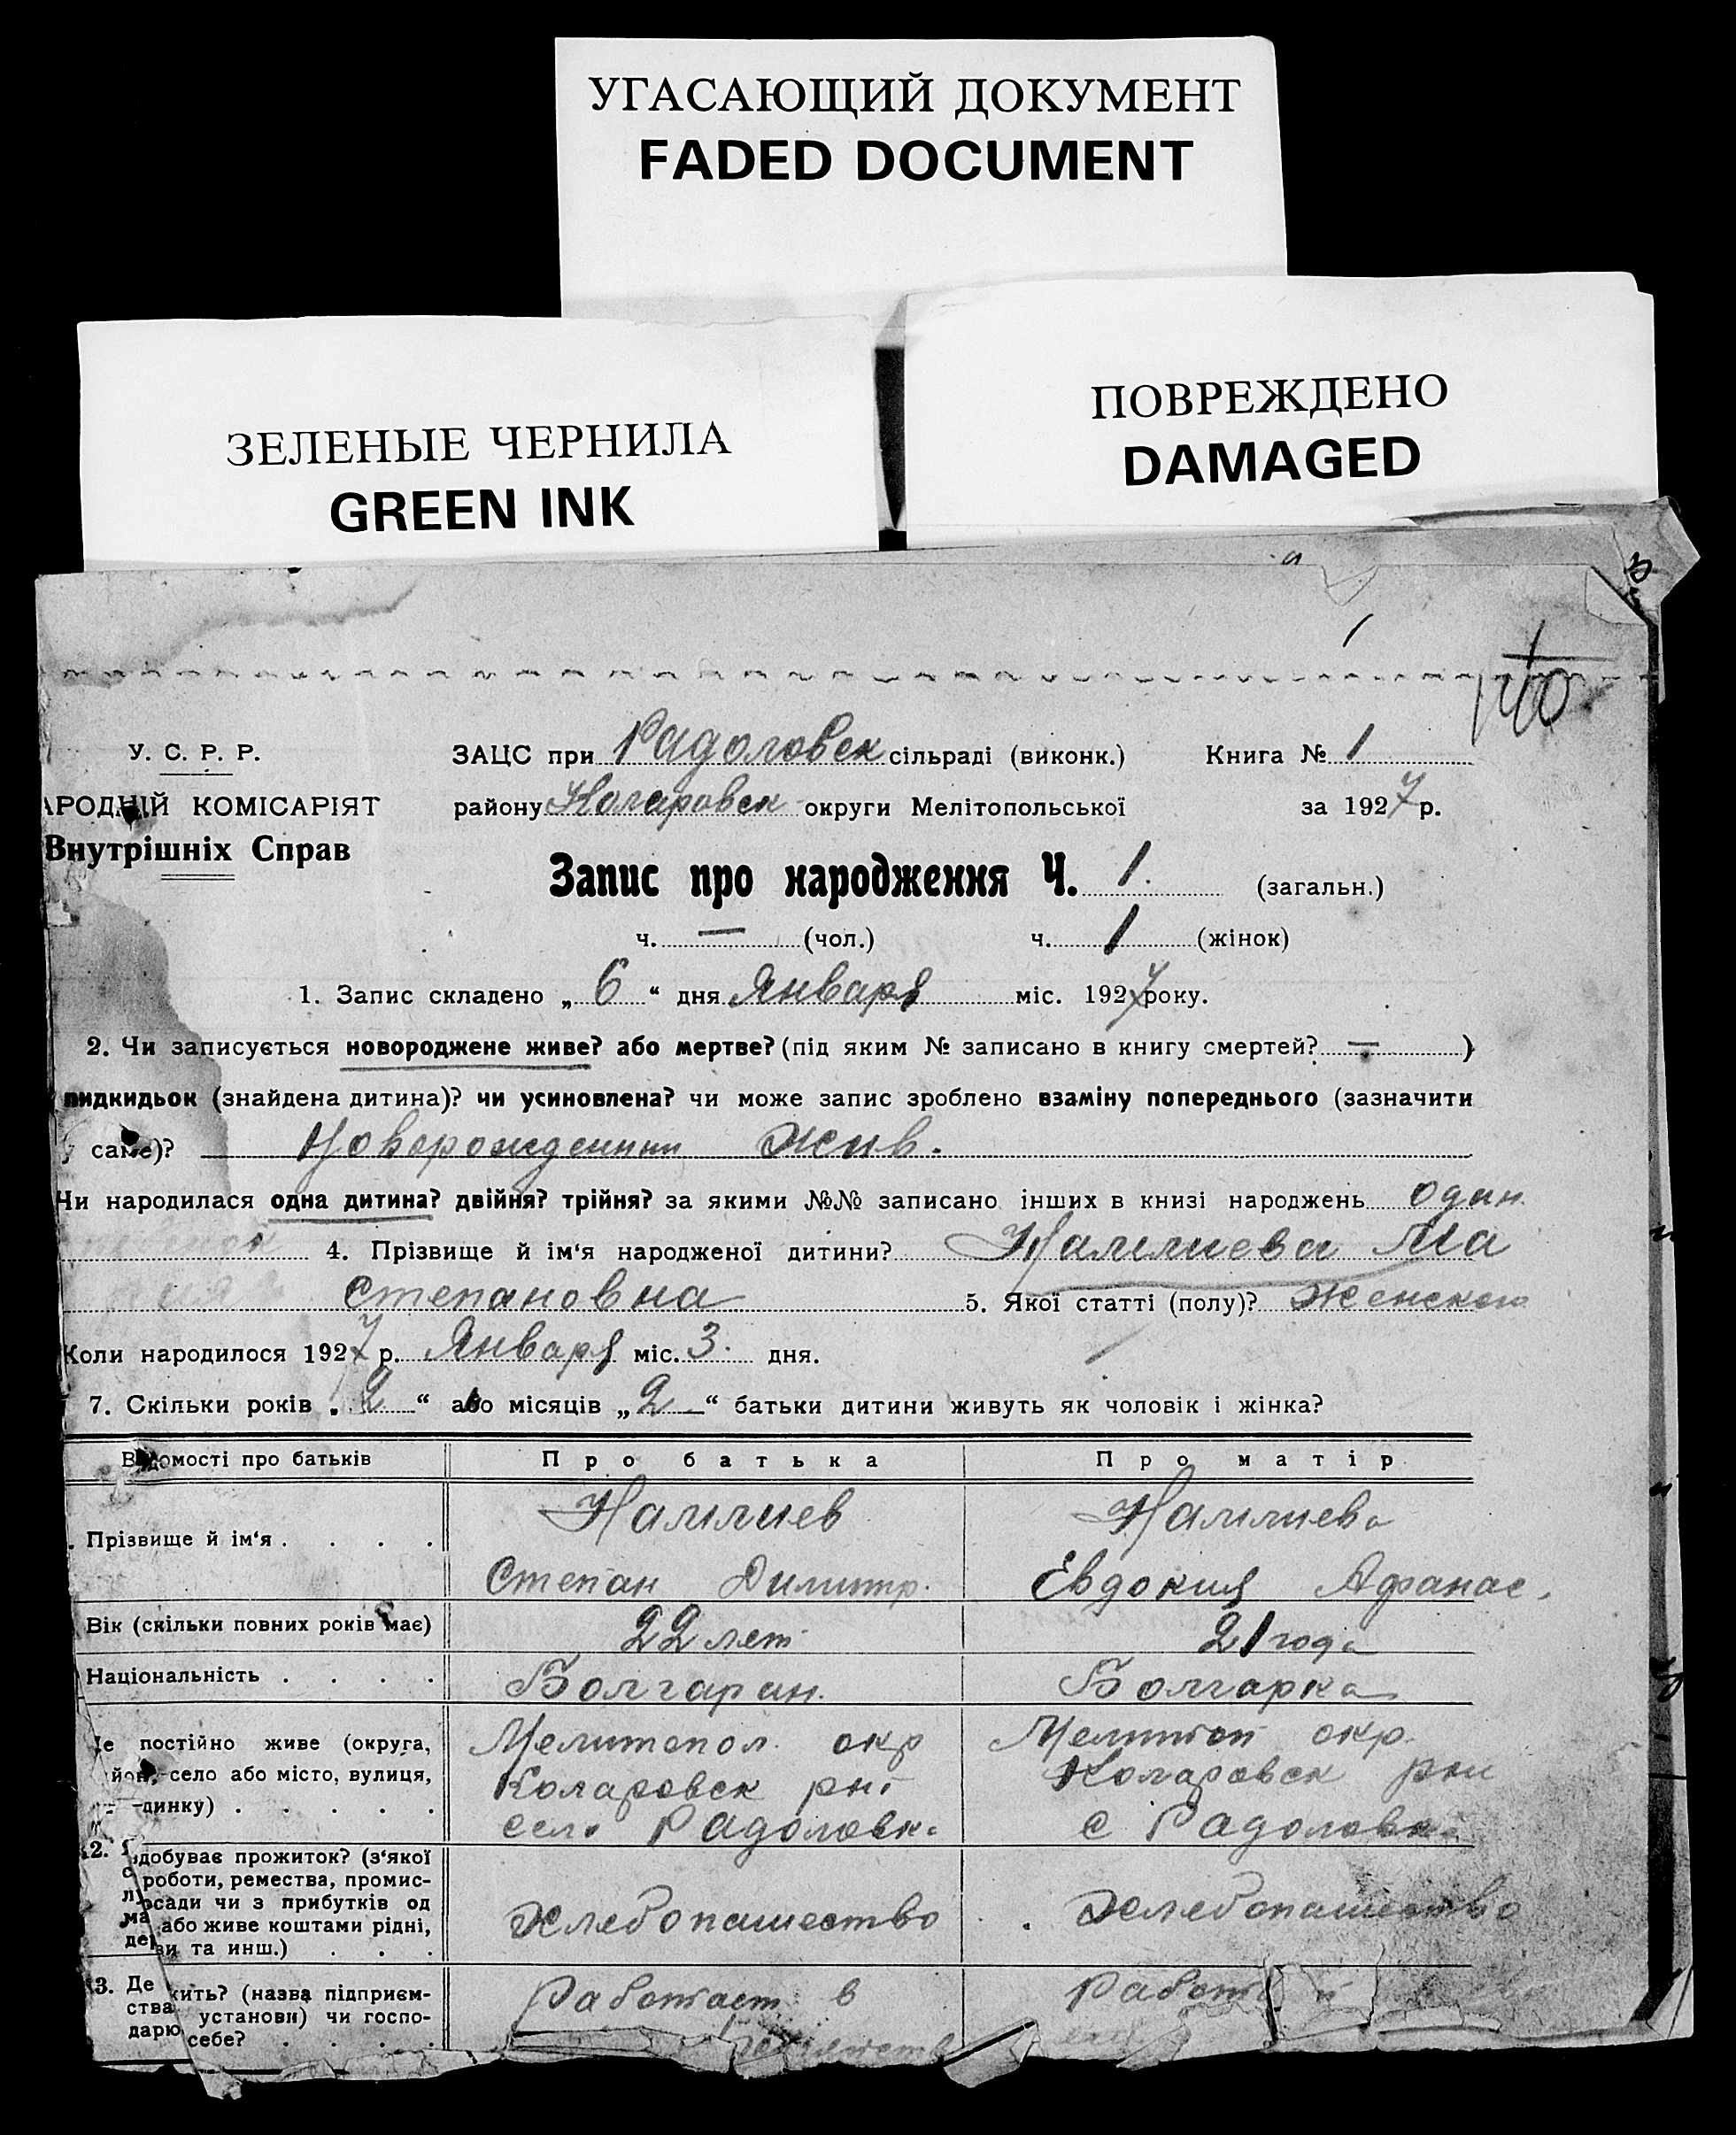 УГАСАЮЩИЙ ДОКУМЕНТ
FADED DOCUMENT
ЗЕЛЕНЫЕ ЧЕРНИЛА
GREEN INK
ПОВРЕЖДЕНО
DAMAGED
1
У. С. Р. Р.
АРОДНІЙ КОМІСАРІЯТ
Внутрішніх Справ
ЗАЦС при Радоловск сільраді (виконк.) Книга № 1
району Коларовск округи Мелітопольської за 1927 р.
Запис про народження Ч. 1. (загальн.)
ч. — (чол.) ч. 1 (жінок)
1. Запис складено „ 6 “ дня Января міс. 1927 року.
2. Чи записується новороджене живе? або мертве? (під яким № записано в книгу смертей? — )
пидкидьок (знайдена дитина)? чи усиновлена? чи може запис зроблено взаміну попереднього (зазначити
саме)? Новорожденный жив.
Чи народилася одна дитина? двійня? трійня? за якими №№ записано інших в книзі народжень один
4. Прізвище й ім'я народженої дитини? Ма
Степановна 5. Якої статті (полу)? Женского
Коли народилося 1927 р. Января міс. 3. дня.
7. Скільки років „ 2 “ або місяців „ 2 — “ батьки дитини живуть як чоловік і жінка?
Відомості про батьків Про батька Про матір
Прізвище й ім'я . . . .
Степан Димитр. Евдокия Афанас.
Вік (скільки повних років має) 22 лет 21 года
Національність . . . . Болгарин. Болгарка
Де постійно живе (округа,
район, село або місто, вулиця,
динку) . . . . .
Мелитопол. окр Мелитоп окр.
Коларовск рн Коларовск рн
село Радоловка с Радоловка
2.
здобуває прожиток? (з'якої
роботи, ремества, промис-
осади чи з прибутків од
ма або живе коштами рідні,
дер ви та инш.) . . .
хлебопашество хлебопашество
3. Де жить? (назва підприєм-
ства установи) чи госпо-
дарю себе? . . . .
Работает в